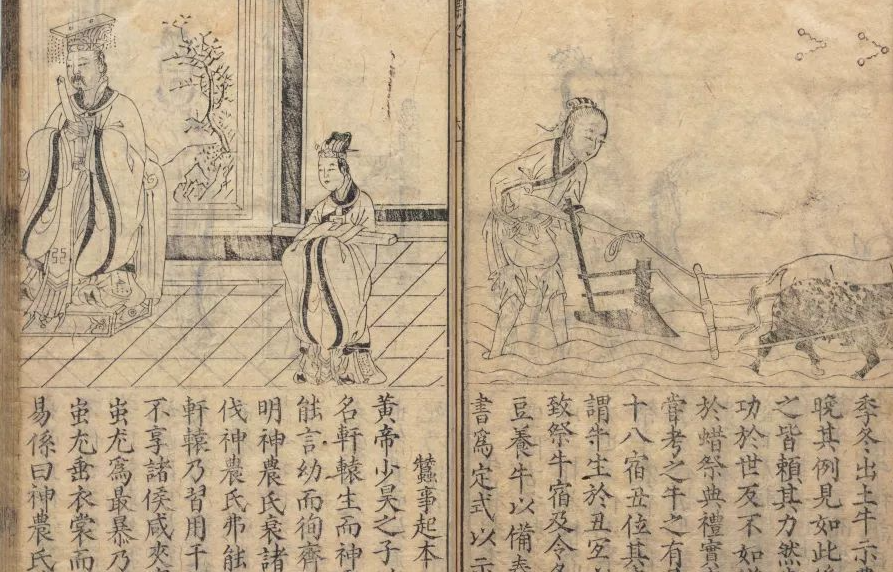 季冬出土牛示農
晚其例見如此
之皆頼其力然
功於世反不如
於蜡祭典禮實
嘗考之牛之有
十八宿丑位其
謂牛生於丑宜
致祭牛宿及令各
豆養牛以備春
書爲定式以示
蠶事起本
黃帝少昊之子
名軒轅生而神
能言幼而徇齊
明神農氏衰諸
伐神農氏弗能
軒轅乃習用干
不享諸侯咸來
蚩尤爲最暴乃
蚩尤垂衣裳而
易係曰神農氏